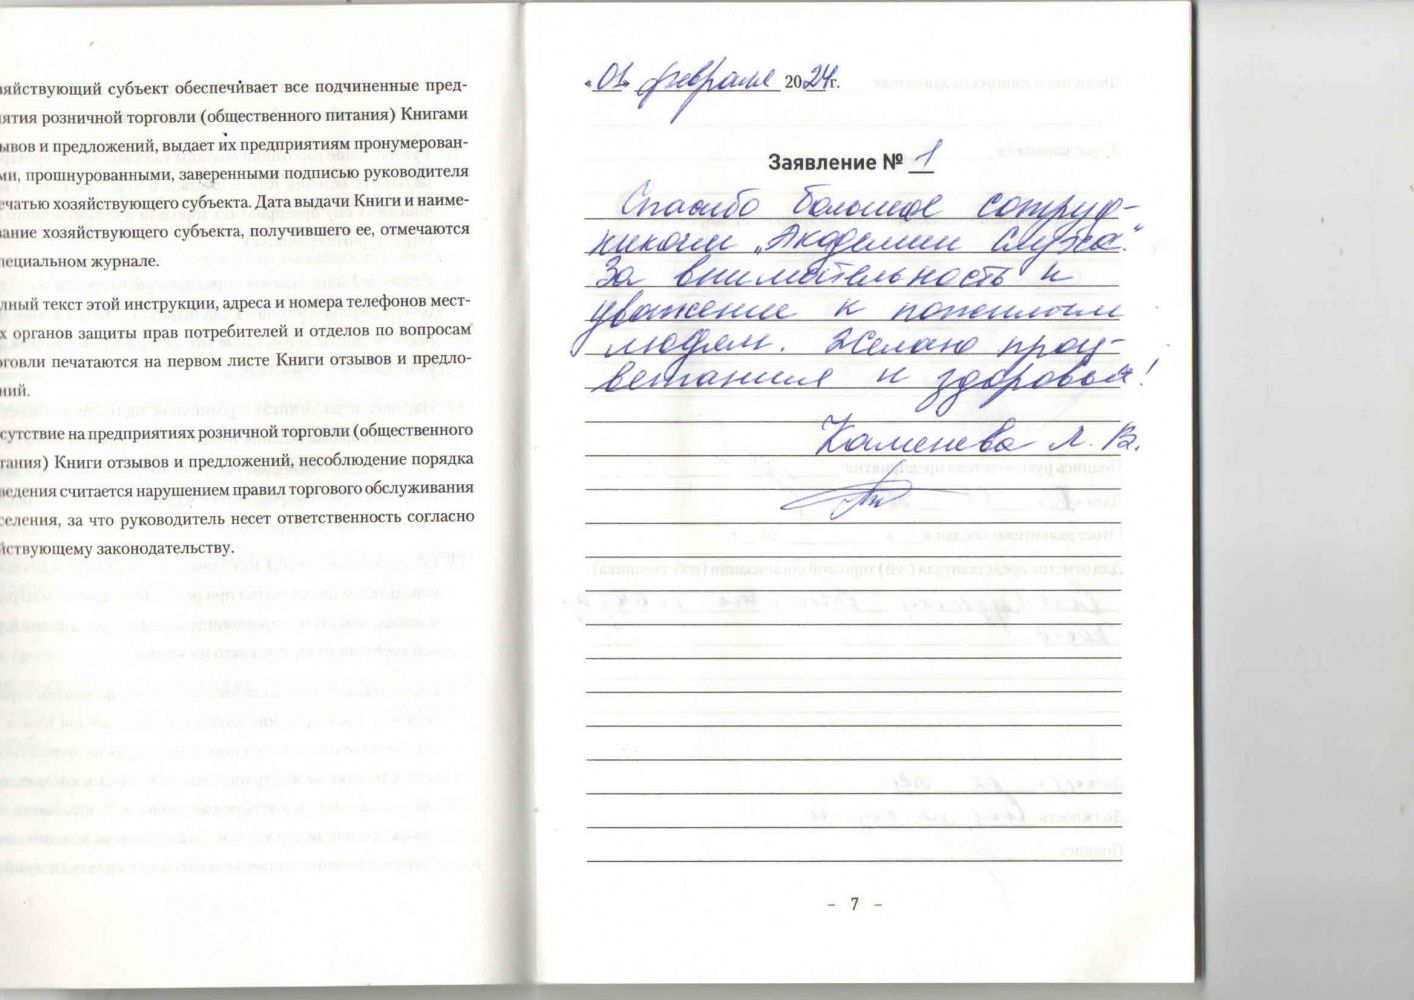 зяйствующий субъект обеспечивает все подчиненные пред-
иятия розничной торговли (общественного питания) Книгами
ывов и предложений, выдает их предприятиям пронумерован-
ми, прошнурованными, заверенными подписью руководителя
ечатью хозяйствующего субъекта. Дата выдачи Книги и наиме-
вание хозяйствующего субъекта, получившего ее, отмечаются
пециальном журнале.
лный текст этой инструкции, адреса и номера телефонов мест-
х органов защиты прав потребителей и отделов по вопросам
рговли печатаются на первом листе Книги отзывов и предло-
ний.
сутствие на предприятиях розничной торговли (общественного
тания) Книги отзывов и предложений, несоблюдение порядка
ведения считается нарушением правил торгового обслуживания
селения, за что руководитель несет ответственность согласно
йствующему законодательству.
«01» февраля 2024г.
Заявление № 1
Спасибо большое сотруд-
никам „Академии Слуха".
За внимательность и
уважение к пожилым
людям. Желаю проц-
ветания и здоровья!
Каменева Л. В.
- 7 -